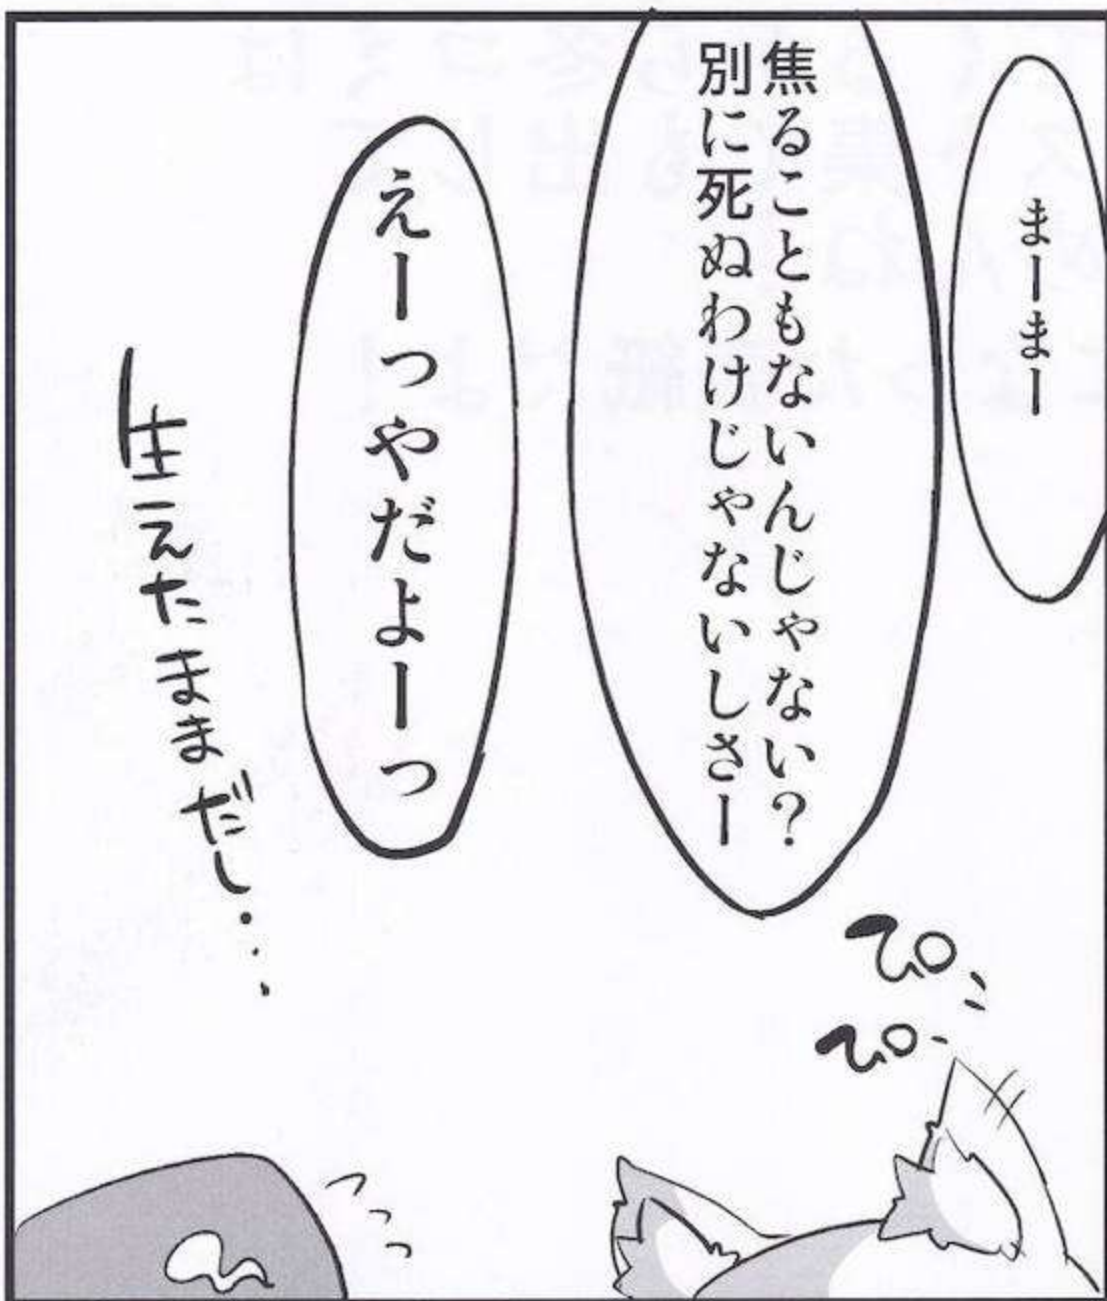 まーまー
焦ることもないんじゃない?
別に死ぬわけじゃないしさー
えーっやだよーっ
生えたままだし...
ぴ
ぴ